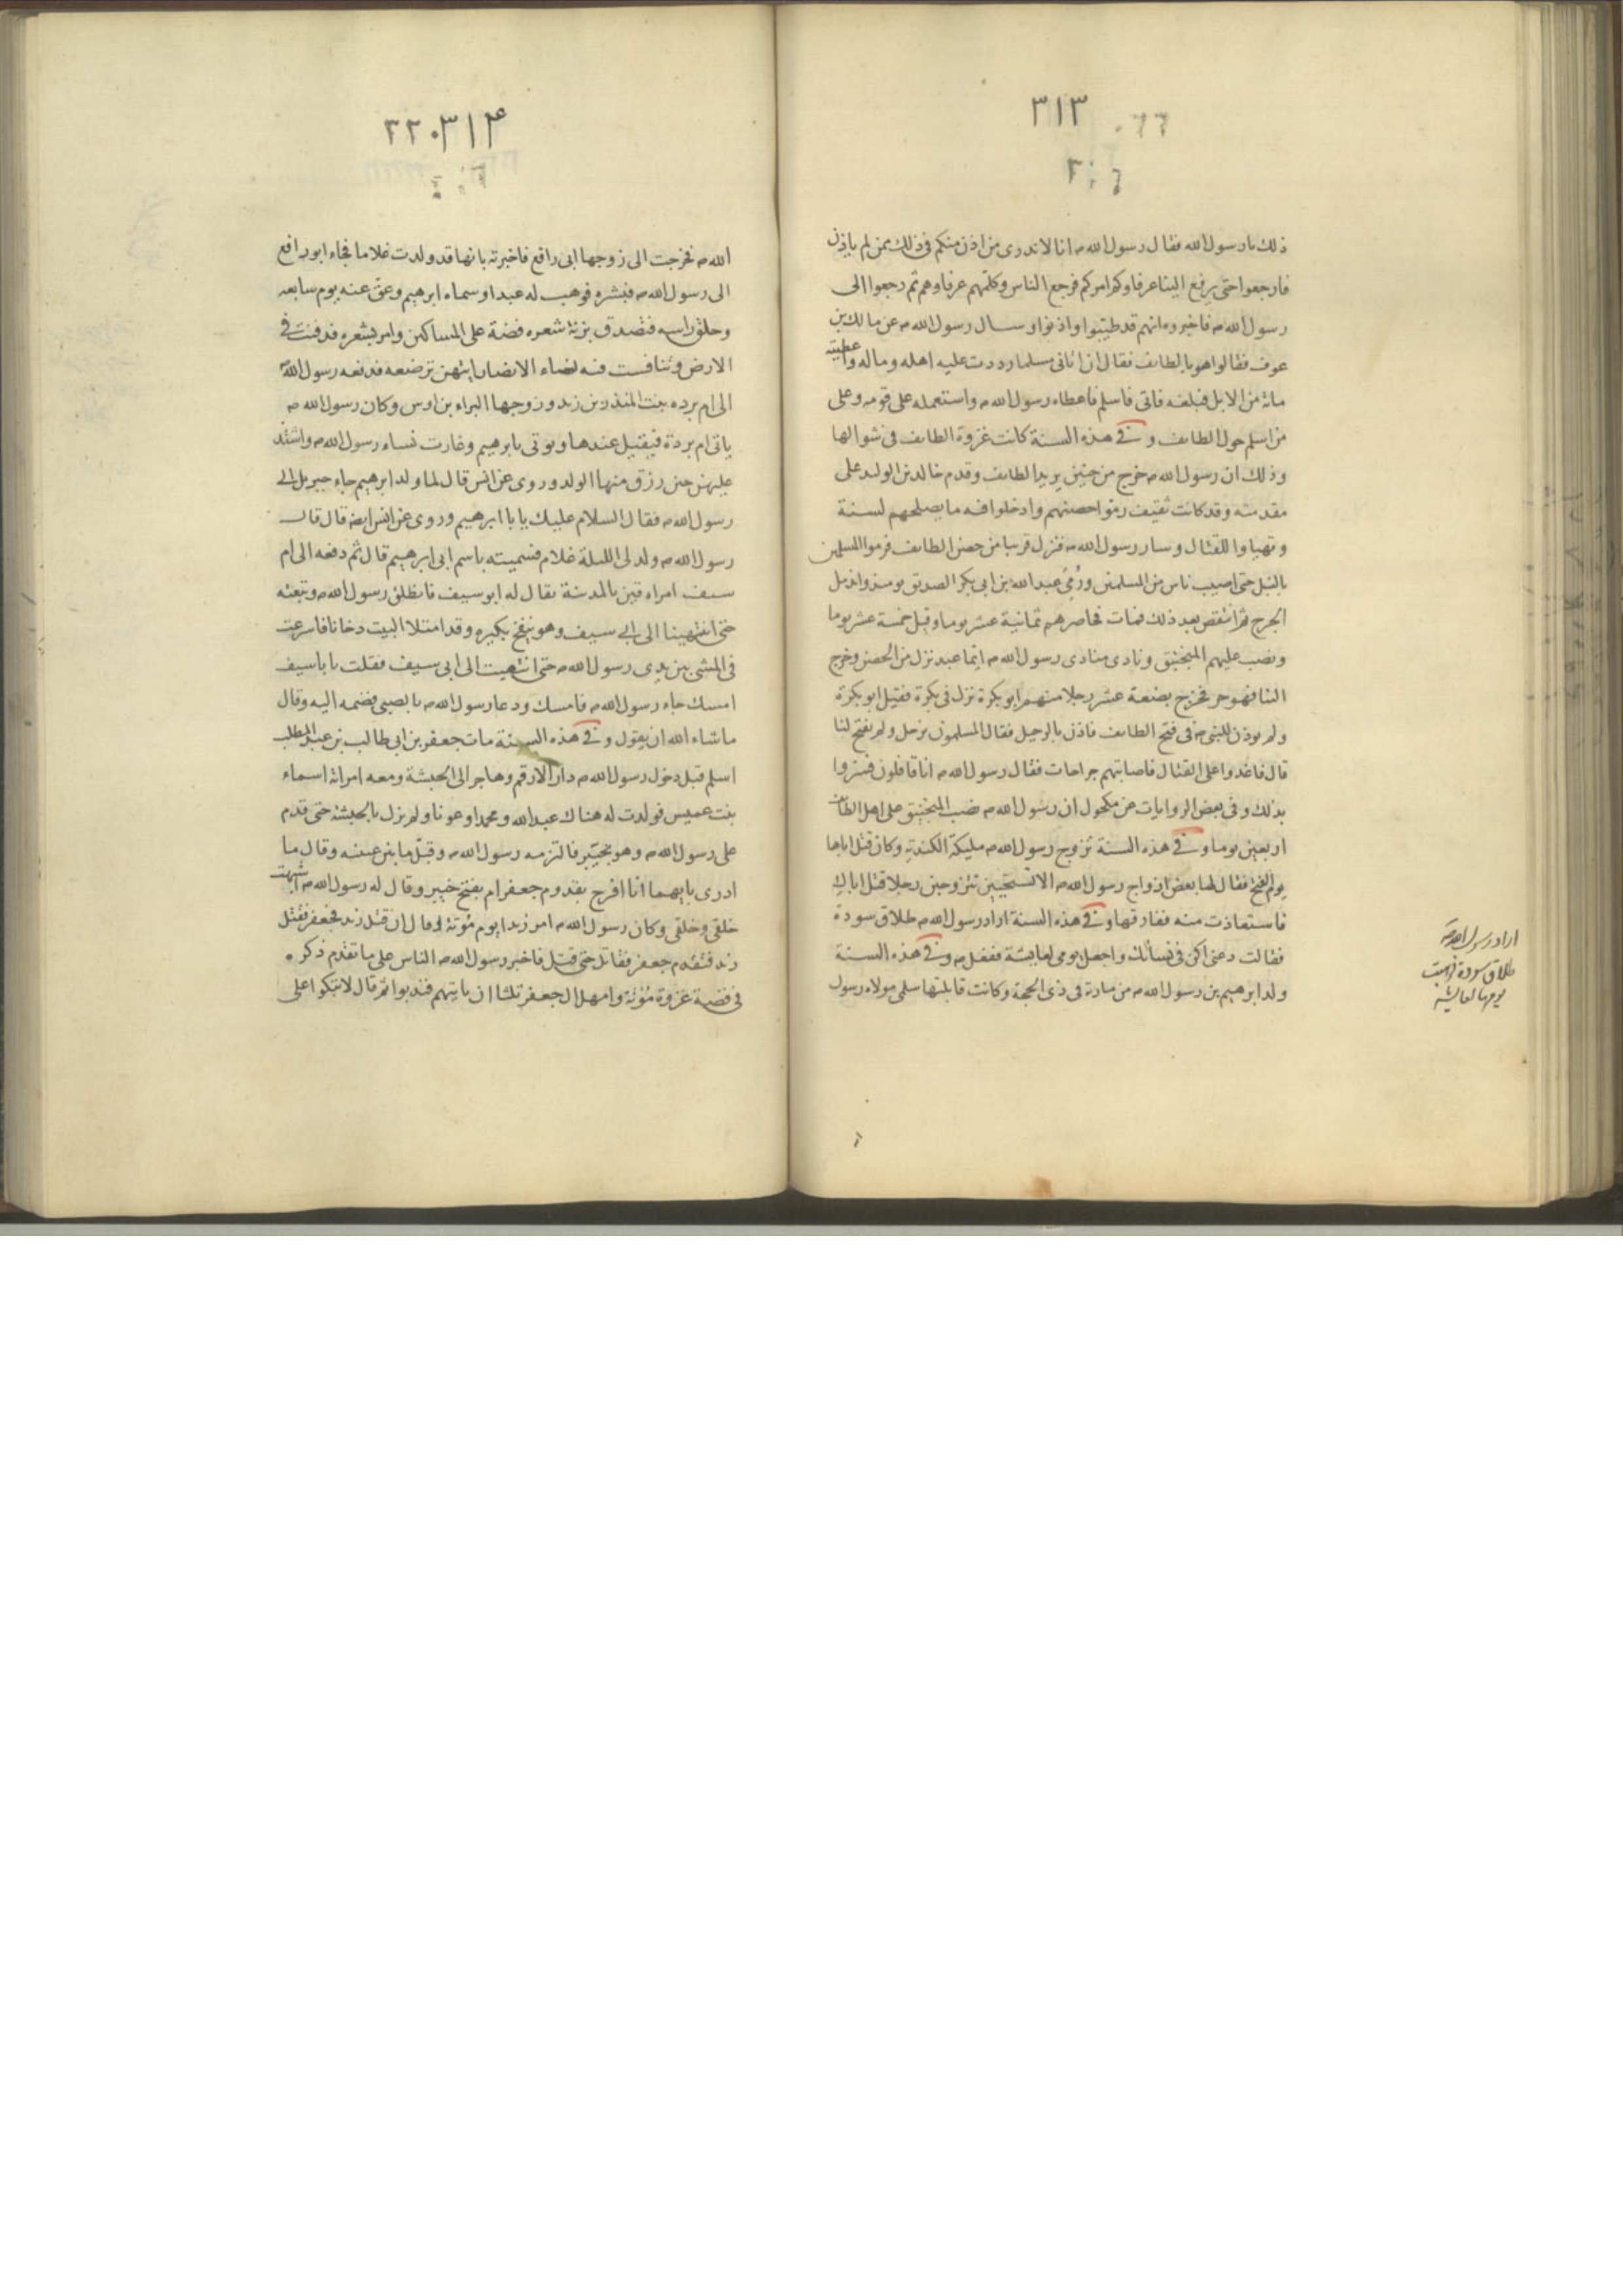 ٣١٣
ذلك يا رسول الله فقال رسول الله ص انا لا ندرى من اذن منكم فى ذلك ممن لم ياذن
فارجعوا حتى يرفع الينا عرفاوكم امركم فرجع الناس وكلمهم عرفاوهم ثم رجعوا الى
رسول الله ص فاخبروه انهم قد طيبوا واذنوا وسال رسول الله ص عن مالك بن
عوف فقالوا هو بالطايف فقال ان اتانى مسلما رددت عليه اهله وماله واعطيته
مائة من الابل فبلغه فاتى فاسلم فاعطاه رسول الله ص واستعمله على قومه وعلى
من اسلم حول الطايف وفى هذه السنة كانت غزوة الطايف فى شوالها
وذلك ان رسول الله ص خرج من حنين يريد الطايف وقدم خالد بن الوليد على
مقدمته وقد كانت ثقيف رموا حصنهم وادخلوا فيه ما يصلحهم لسنة
وتهياوا للقتال وسار رسول الله ص فنزل قريبا من حصن الطايف فرموا المسلمين
بالنبل حتى اصيب ناس من المسلمين ورُمِىَ عبد الله بن ابى بكر الصديق يومئذ واندمل
الجرح ثم انتقض بعد ذلك فمات فحاصرهم ثمانية عشر يوما وقيل خمسة عشر يوما
ونصب عليهم المنجنيق ونادى منادى رسول الله ص ايما عبد نزل من الحصن وخرج
الينا فهو حر فخرج بضعة عشر رجلا منهم ابو بكرة نزل فى بكرة فقيل ابو بكرة
ولم يوذن للنبى ص فى فتح الطايف فاذن بالرحيل فقال المسلمون نرحل ولم يفتح لنا
قال فاغدوا على القتال فاصابتهم جراحات فقال رسول الله ص انا قافلون فسروا
بذلك وفى بعض الروايات عن مكحول ان رسول الله ص نصب المنجنيق على اهل الطايف
اربعين يوما وفى هذه السنة تزوج رسول الله ص مليكة الكندية وكان قتل اباها
يوم الفتح فقال لها بعض ازواج رسول الله ص الا تستحيين تتزوجين رجلا قتل اباك
فاستعاذت منه ففارقها وفى هذه السنة اراد رسول الله ص طلاق سودة
فقالت دعنى اكن فى نسائك واجعل يومى لعايشة ففعل ص وفى هذه السنة
ولد ابرهيم بن رسول الله ص من مارية فى ذى الحجة وكانت قابلتها سلمى مولاه رسول
اراد رسول الله ص
طلاق سودة فوهبت
يومها لعايشه
٣١٤ ٢٢٠
الله ص فخرجت الى زوجها ابى رافع فاخبرته بانها قد ولدت غلاما فجاء ابو رافع
الى رسول الله ص فبشره فوهب له عبدا وسماه ابرهيم وعق عنه يوم سابعه
وحلق راسه فتصدق بزنة شعره فضة على المساكين وامر بشعره فدفنت فى
الارض وتنافست فيه نساء الانصار ايتهن ترضعه فدفعه رسول الله
الى ام برده بنت المنذر بن زيد وزوجها البراء بن اوس وكان رسول الله ص
ياتى ام بردة فيقيل عندها ويوتى بابرهيم وغارت نساء رسول الله ص واشتد
عليهن حين رزق منها الولد وروى عن انس قال لما ولد ابرهيم جاء جبريل الى
رسول الله ص فقال السلام عليك يا با ابرهيم وروى عن انس ايضا قال قال
رسول الله ص ولد لى الليلة غلام فسميته باسم ابى ابرهيم قال ثم دفعه الى ام
سيف امراه قين بالمدينة يقال له ابو سيف فانطلق رسول الله ص وتبعته
حتى انتهينا الى ابى سيف وهو ينفخ بكيره وقد امتلا البيت دخانا فاسرعت
فى المشى بين يدى رسول الله ص حتى انتهيت الى ابى سيف فقلت يا باسيف
امسك جاء رسول الله ص فامسك ودعا رسول الله ص بالصبى فضمه اليه وقال
ما شاء الله ان يقول وفى هذه السنة مات جعفر بن ابى طالب بن عبد المطلب
اسلم قبل دخول رسول الله ص دار الارقم وهاجر الى الحبشة ومعه امراته اسماء
بنت عميس فولدت له هناك عبد الله ومحمدا وعونا ولم يزل بالحبشة حتى قدم
على رسول الله ص وهو بخيبر فالتزمه رسول الله ص وقبل ما بين عينيه وقال ما
ادرى بايهما انا افرح بقدوم جعفر ام بفتح خيبر وقال له رسول الله ص اشبهت
خلقى وخلقى وكان رسول الله ص امر زيدا يوم مُوتة وقال ان قتل زيد فجعفر فقتل
زيد فتقدم جعفر فقاتل حتى قتل فاخبر رسول الله ص الناس على ما تقدم ذكره
فى قصة غزوة مُوتة وامهل ال جعفر ثلثا ان ياتيهم فندبوا ثم قال لا تبكوا على